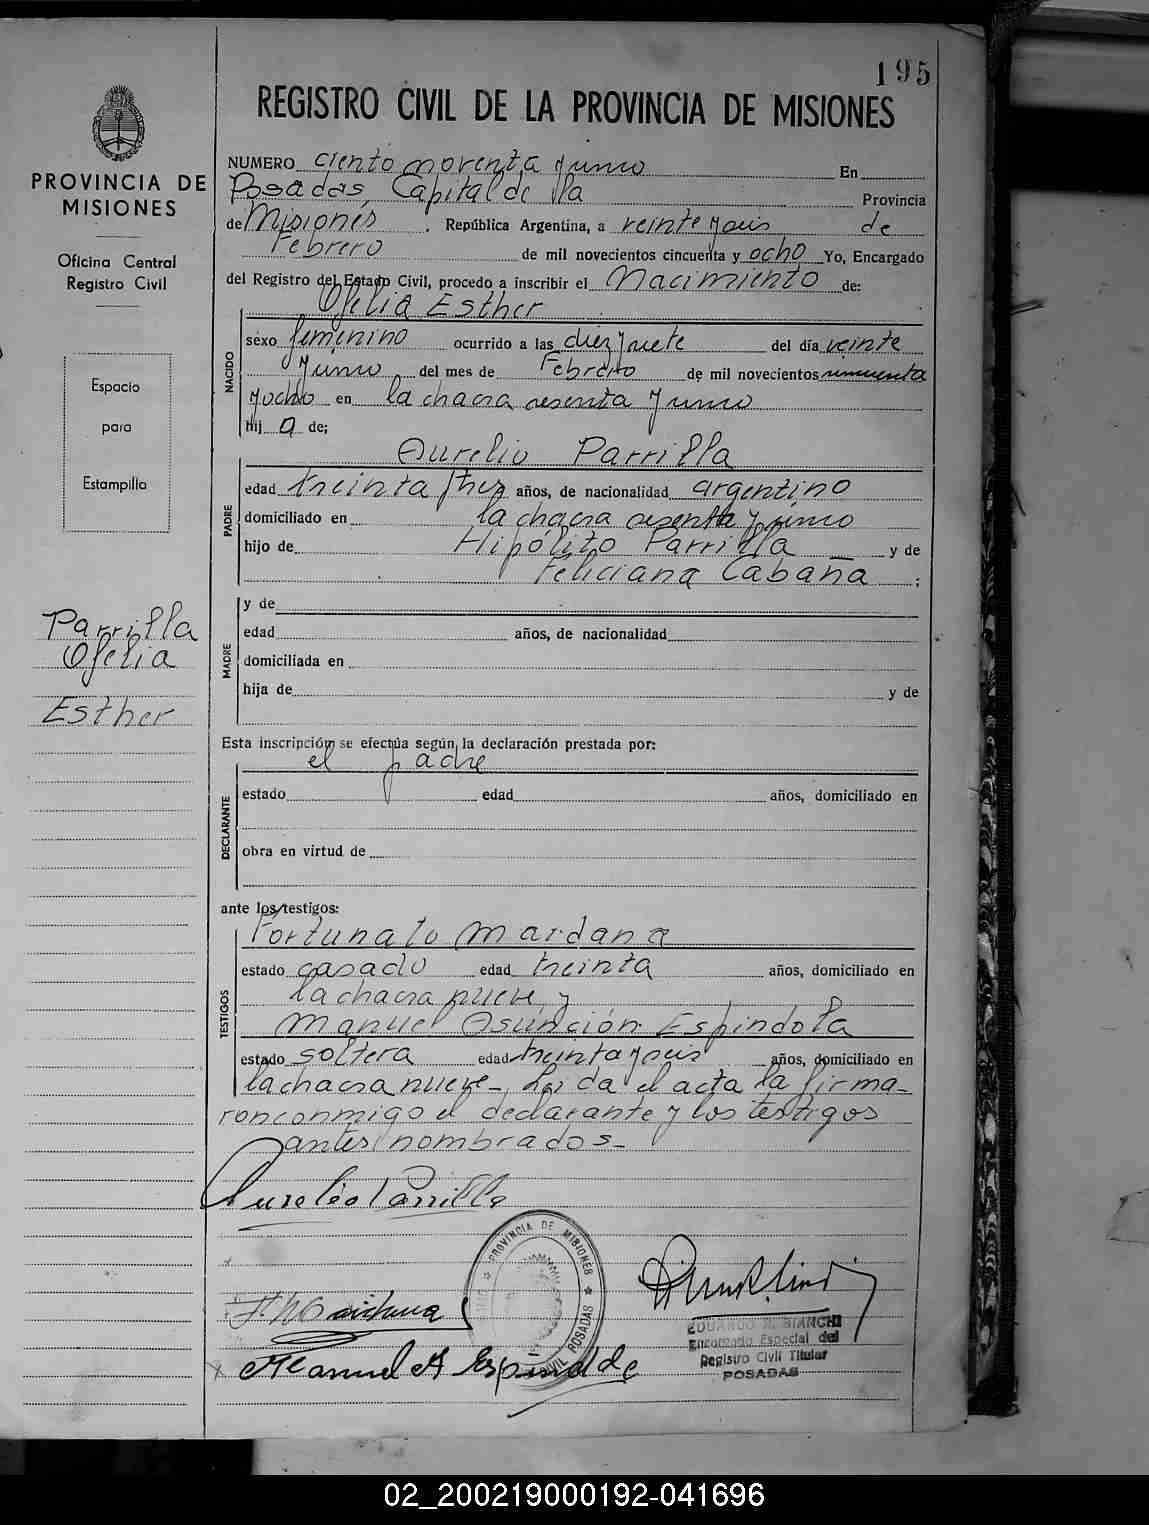 195
REGISTRO CIVIL DE LA PROVINCIA DE MISIONES
PROVINCIA DE
MISIONES
Oficina Central
Registro Civil
Espacio
para
Estampilla
Parrilla
Ofelia
Esther
NUMERO ciento noventa y uno En
Posadas, Capital de la Provincia
de Misiones. República Argentina, a veinte y seis de
Febrero de mil novecientos cincuenta y ocho Yo, Encargado
del Registro del Estado Civil, procedo a inscribir el Nacimiento de:
Ofelia Esther
NACIDO
sexo femenino ocurrido a las diez y siete del día veinte
y uno del mes de Febrero de mil novecientos cincuenta
y ocho en la chacra sesenta y uno
hij a de;
Aurelio Parrilla
PADRE
edad treinta y tres años, de nacionalidad argentino
domiciliado en la chacra sesenta y uno
hijo de Hipólito Parrilla y de
Feliciana Cabaña ;
MADRE
y de
edad años, de nacionalidad
domiciliada en
hija de y de
Esta inscripción se efectúa según la declaración prestada por:
el padre
DECLARANTE
estado edad años, domiciliado en
obra en virtud de
ante los testigos:
Fortunato Mardana
TESTIGOS
estado casado edad treinta años, domiciliado en
la chacra nueve y
Manuel Asunción Espindola
estado soltera edad treinta y seis años, domiciliado en
la chacra nueve - Leída el acta la firma-
ron conmigo el declarante y los testigos
antes nombrados -
Aurelio Parrilla
PROVINCIA DE MISIONES
CIVIL POSADAS
EDUARDO R. BIANCHI
Encargado Especial del
Registro Civil Titular
POSADAS
Manuel A Espindola
02_200219000192-041696